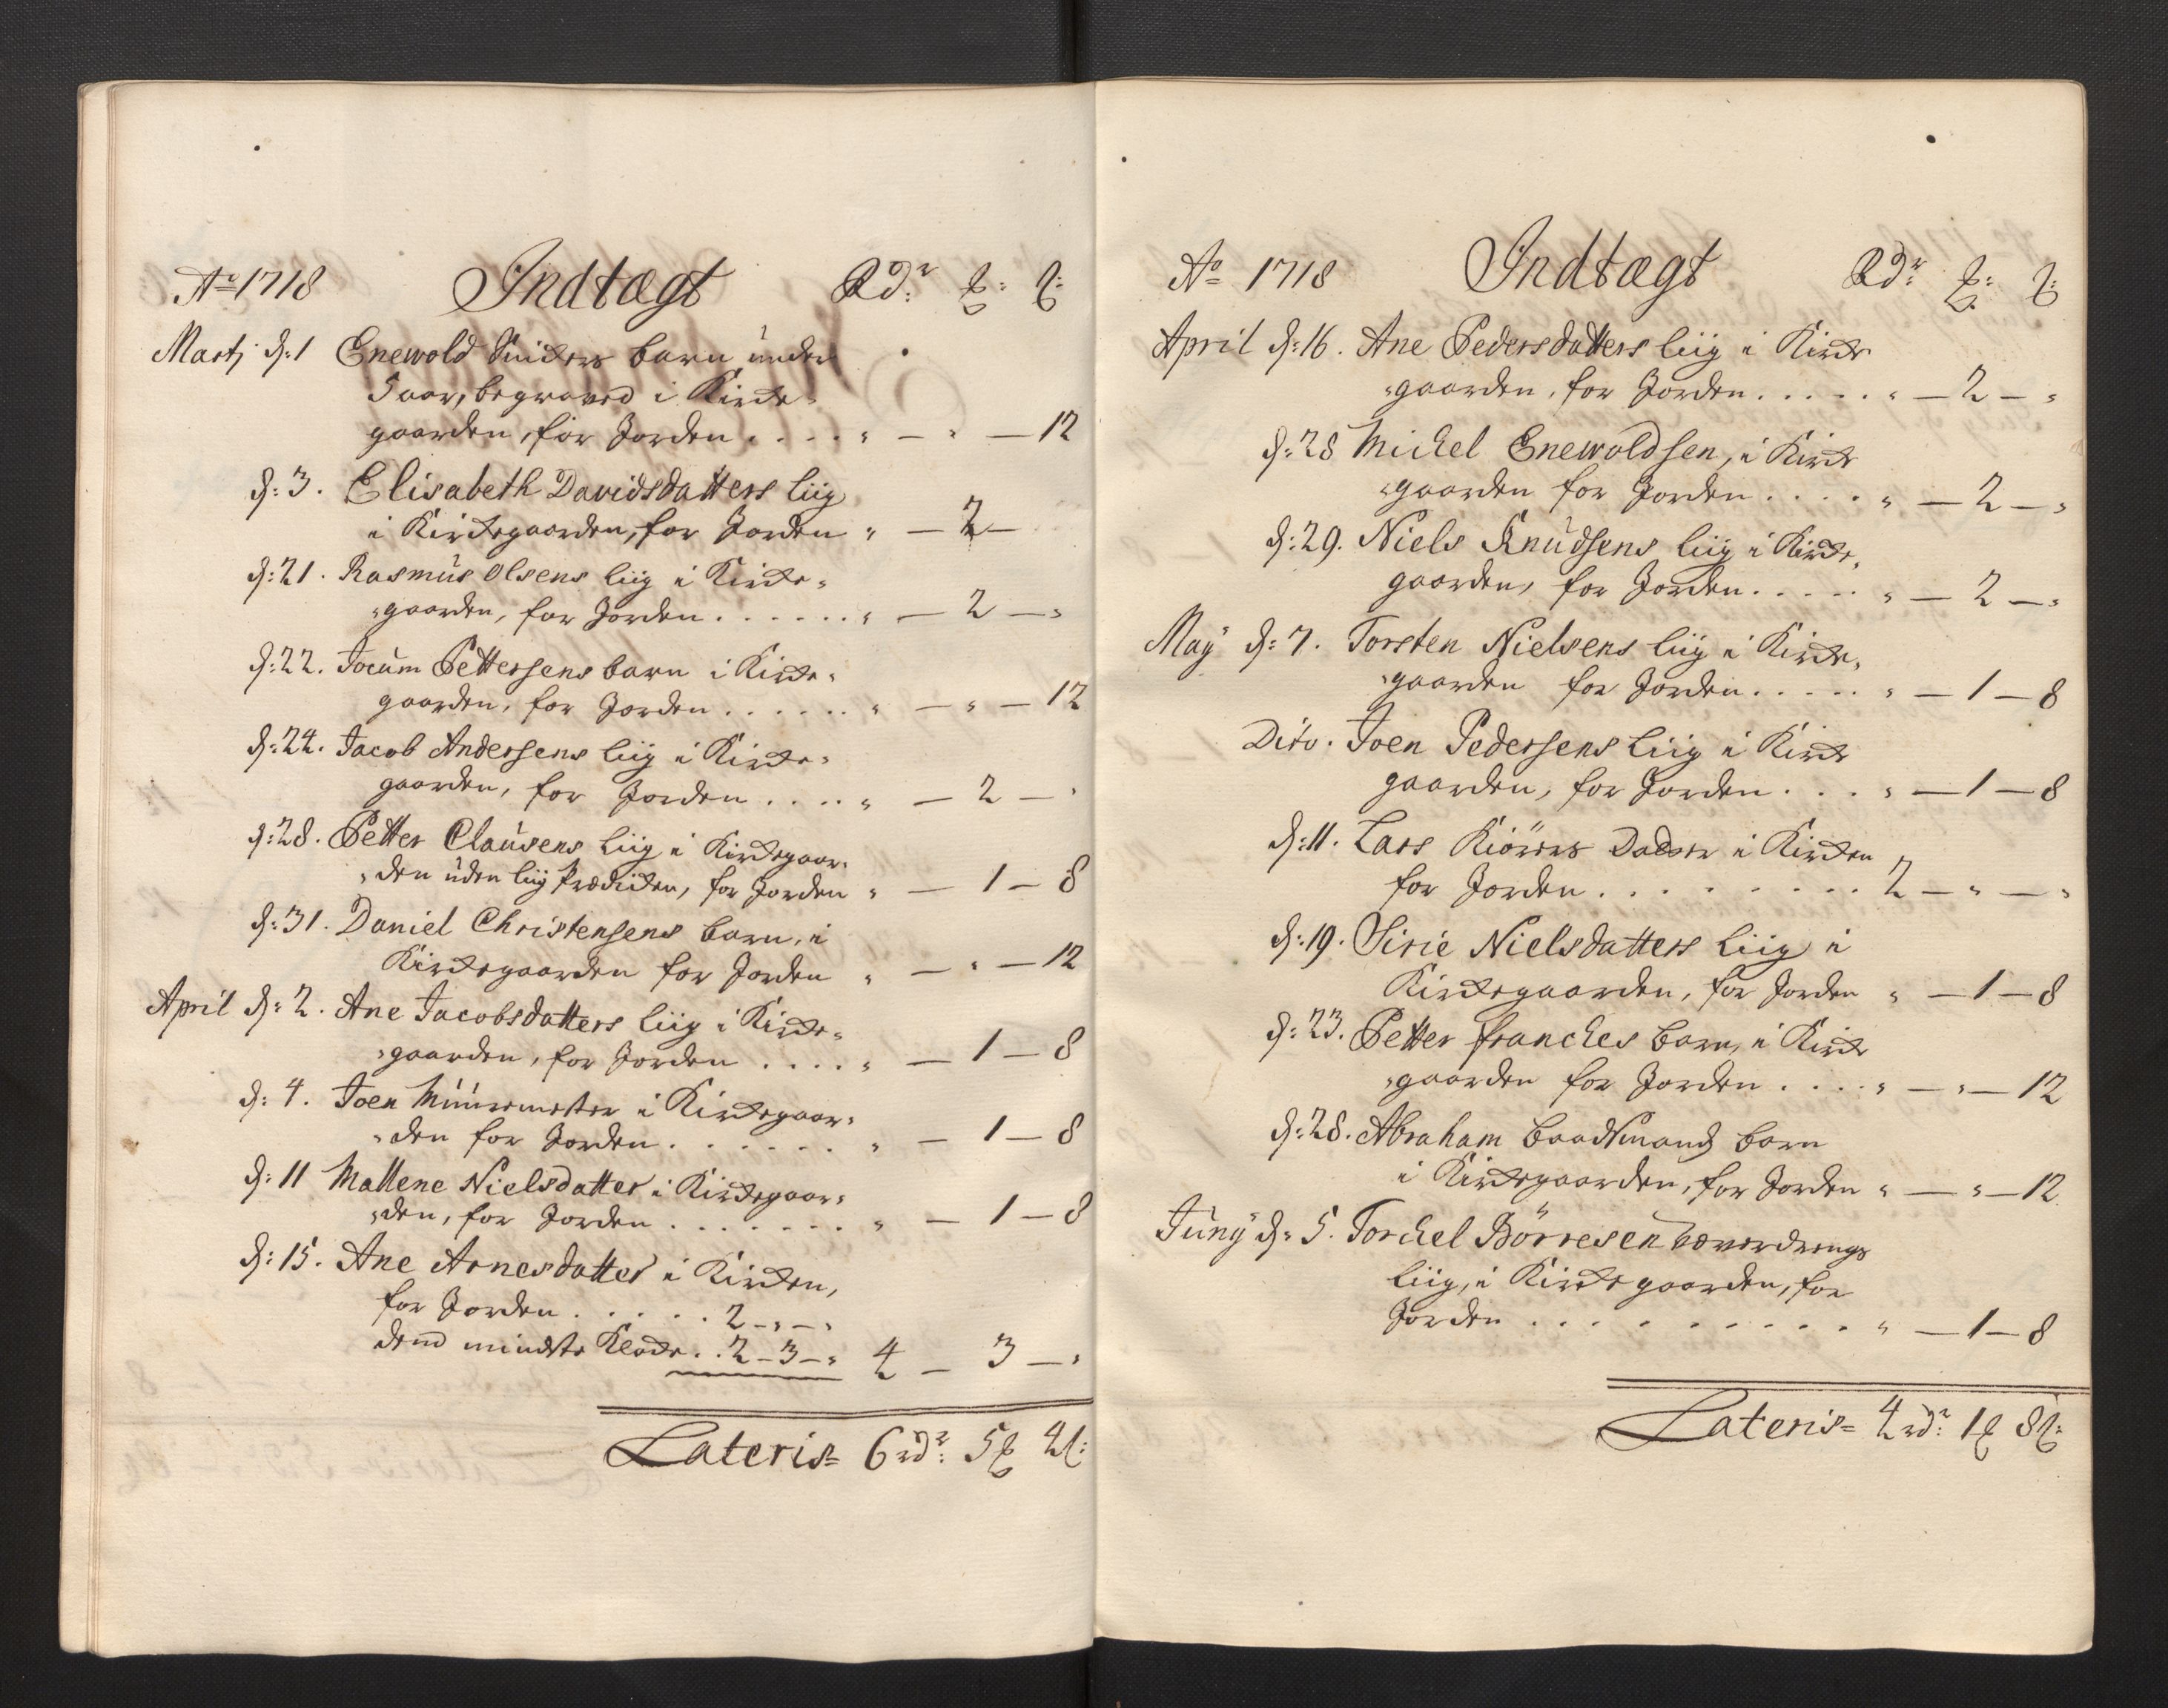 Ao 1718 Indtægt Rdr: ʒ: ß:
Martj d: 1 Enewold Sniders barn under
5 aar, begraved i Kircke-
gaarden, for Jorden . . . . " — " — 12
d: 3. Elisabeth Davidsdatters liig
i Kirckegaarden, for Jorden " — 2 —
d: 21. Rasmus Olsens liig i Kircke-
gaarden, for Jorden . . . . . . " — 2 — "
d: 22. Jocum Pettersens barn i Kircke-
gaarden, for Jorden . . . . . . " — " — 12
d: 24. Jacob Andersens liig i Kircke-
gaarden, for Jorden . . . . " — 2 — "
d: 28. Petter Clausens liig i Kirckegaar-
den uden liig Prædicken, for Jorden " — 1 — 8
d: 31. Daniel Christensens barn, i
Kirckegaarden for Jorden " — " — 12
April d: 2. Ane Jacobsdatters liig i Kircke-
gaarden, for Jorden . . . . " — 1 — 8
d: 4. Joen Muuremester i Kirckegaar-
den for Jorden . . . . . . . " — 1 — 8
d: 11 Mallene Nielsdatter i Kirckegaar-
den, for Jorden . . . . . . . " — 1 — 8
d: 15. Ane Arnesdatter i Kircken,
for Jorden . . . . . 2 — " — "
dend mindste Klocke . . 2 — 3 — " 4 — 3 — "
Lateris = 6 rdr: 5 ʒ 4 ß:
Ao 1718 Indtægt Rdr: ʒ: ß:
April d: 16. Ane Pedersdatters liig i Kircke
gaarden, for Jorden . . . . . " — 2 — "
d: 28 Michel Enewoldsen, i Kircke
gaarden for Jorden . . . . " — 2 — "
d: 29. Niels Knudsens liig i Kircke-
gaarden, for Jorden . . . . . " — 2 — "
May d: 7. Torsten Nielsens liig i Kircke-
gaarden for Jorden . . . . . " — 1 — 8
Dito. Joen Pedersens liig i Kircke
gaarden, for Jorden . . . " — 1 — 8
d: 11. Lars Kiörers Datter i Kircken
for Jorden . . . . . . . . . 2 — " — "
d: 19. Sirie Nielsdatters liig i
Kirckegaarden, for Jorden " — 1 — 8
d: 23. Petter Franches barn, i Kircke
gaarden for Jorden . . . . " — " — 12
d: 28. Abraham Baadsmands barn
i Kirckegaarden, for Jorden " — " — 12
Juny d: 5. Torchel Börresen væverdrengs
liig, i Kirckegaarden, for
Jorden . . . . . . . . . . " — 1 — 8
Lateris = 4 rdr: 1 ʒ 8 ß: